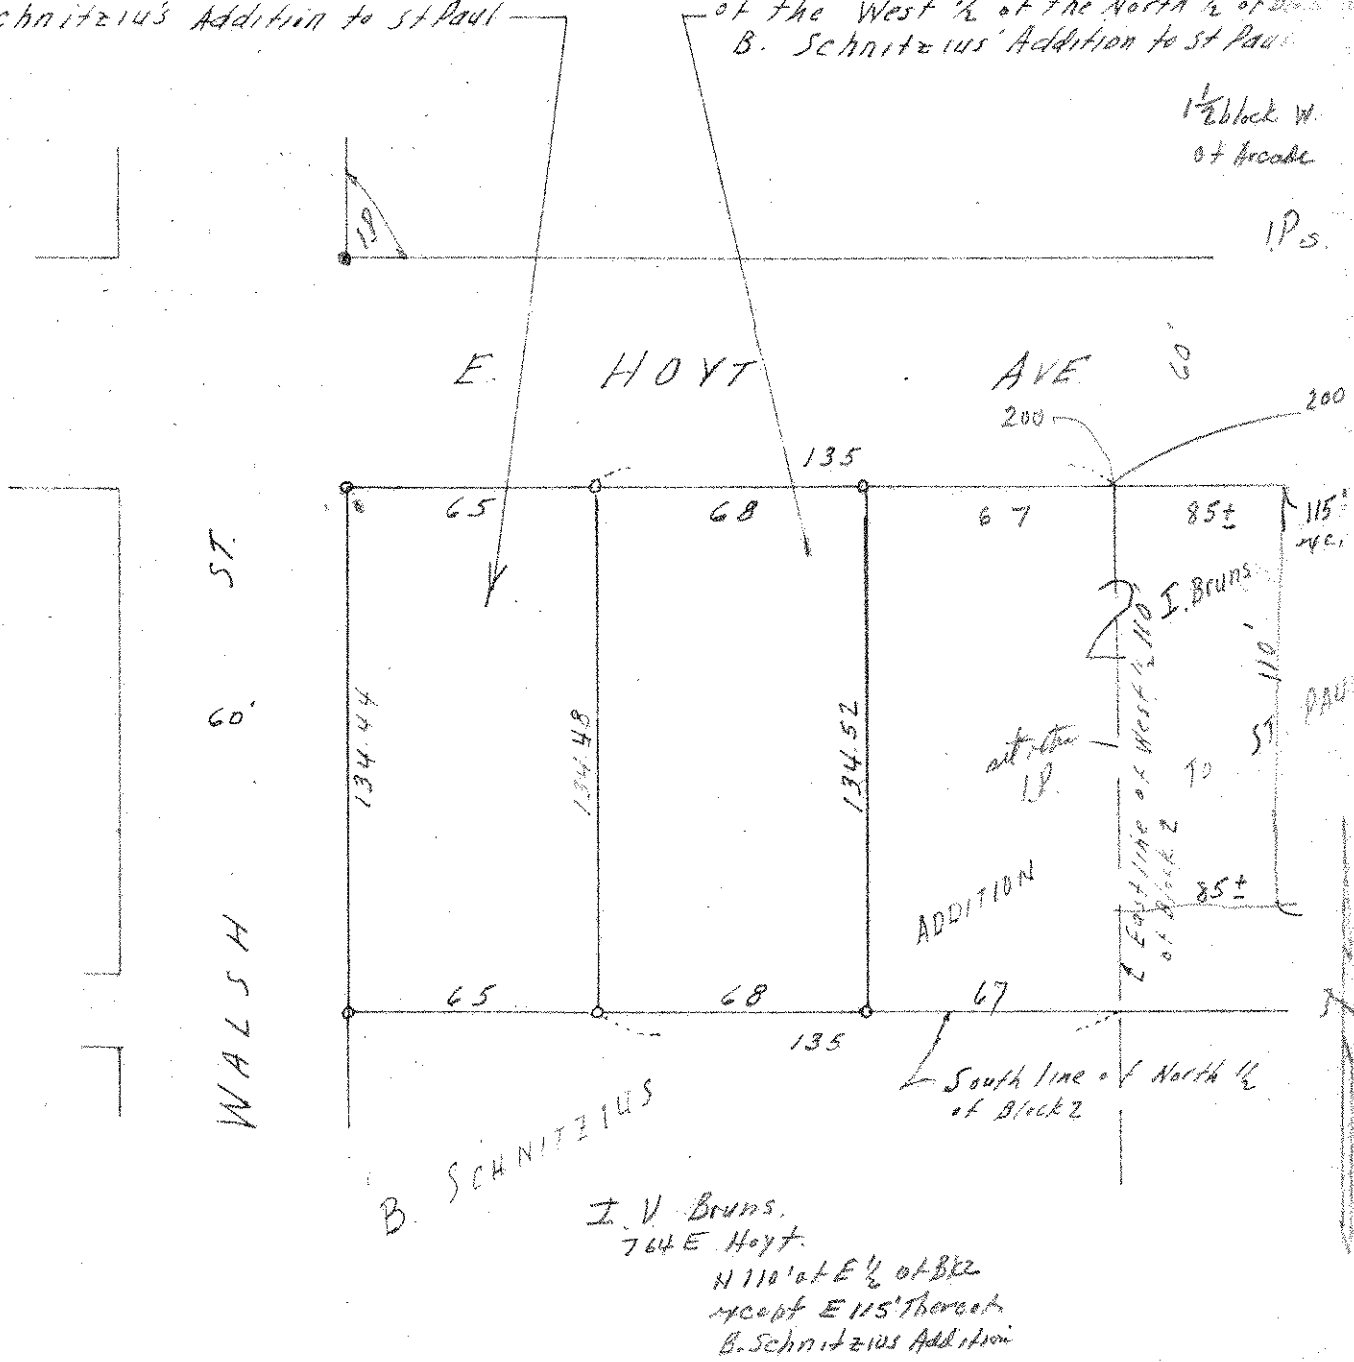 chnitziu's Addition to St Paul
of the West ½ of the North ½ of
B. Schnitzius' Addition to St Paul
1½ block W.
of Arcade
I.P
I.Ps.
E. HOYT AVE
60'
200
200
135
65
68
67
85±
115'
exc.
ST.
60'
WALSH
134.44
134.48
134.52
I. Bruns
110'
East line of West ½
of Block 2
110
I.P.
ADDITION
TO
ST
PAU
85±
65
68
67
135
South line of North ½
of Block 2
B. SCHNITZIUS
I. V Bruns.
764 E Hoyt.
N 110' of E ½ of Bk2
except E 115' Thereof
B. Schnitzius Addition